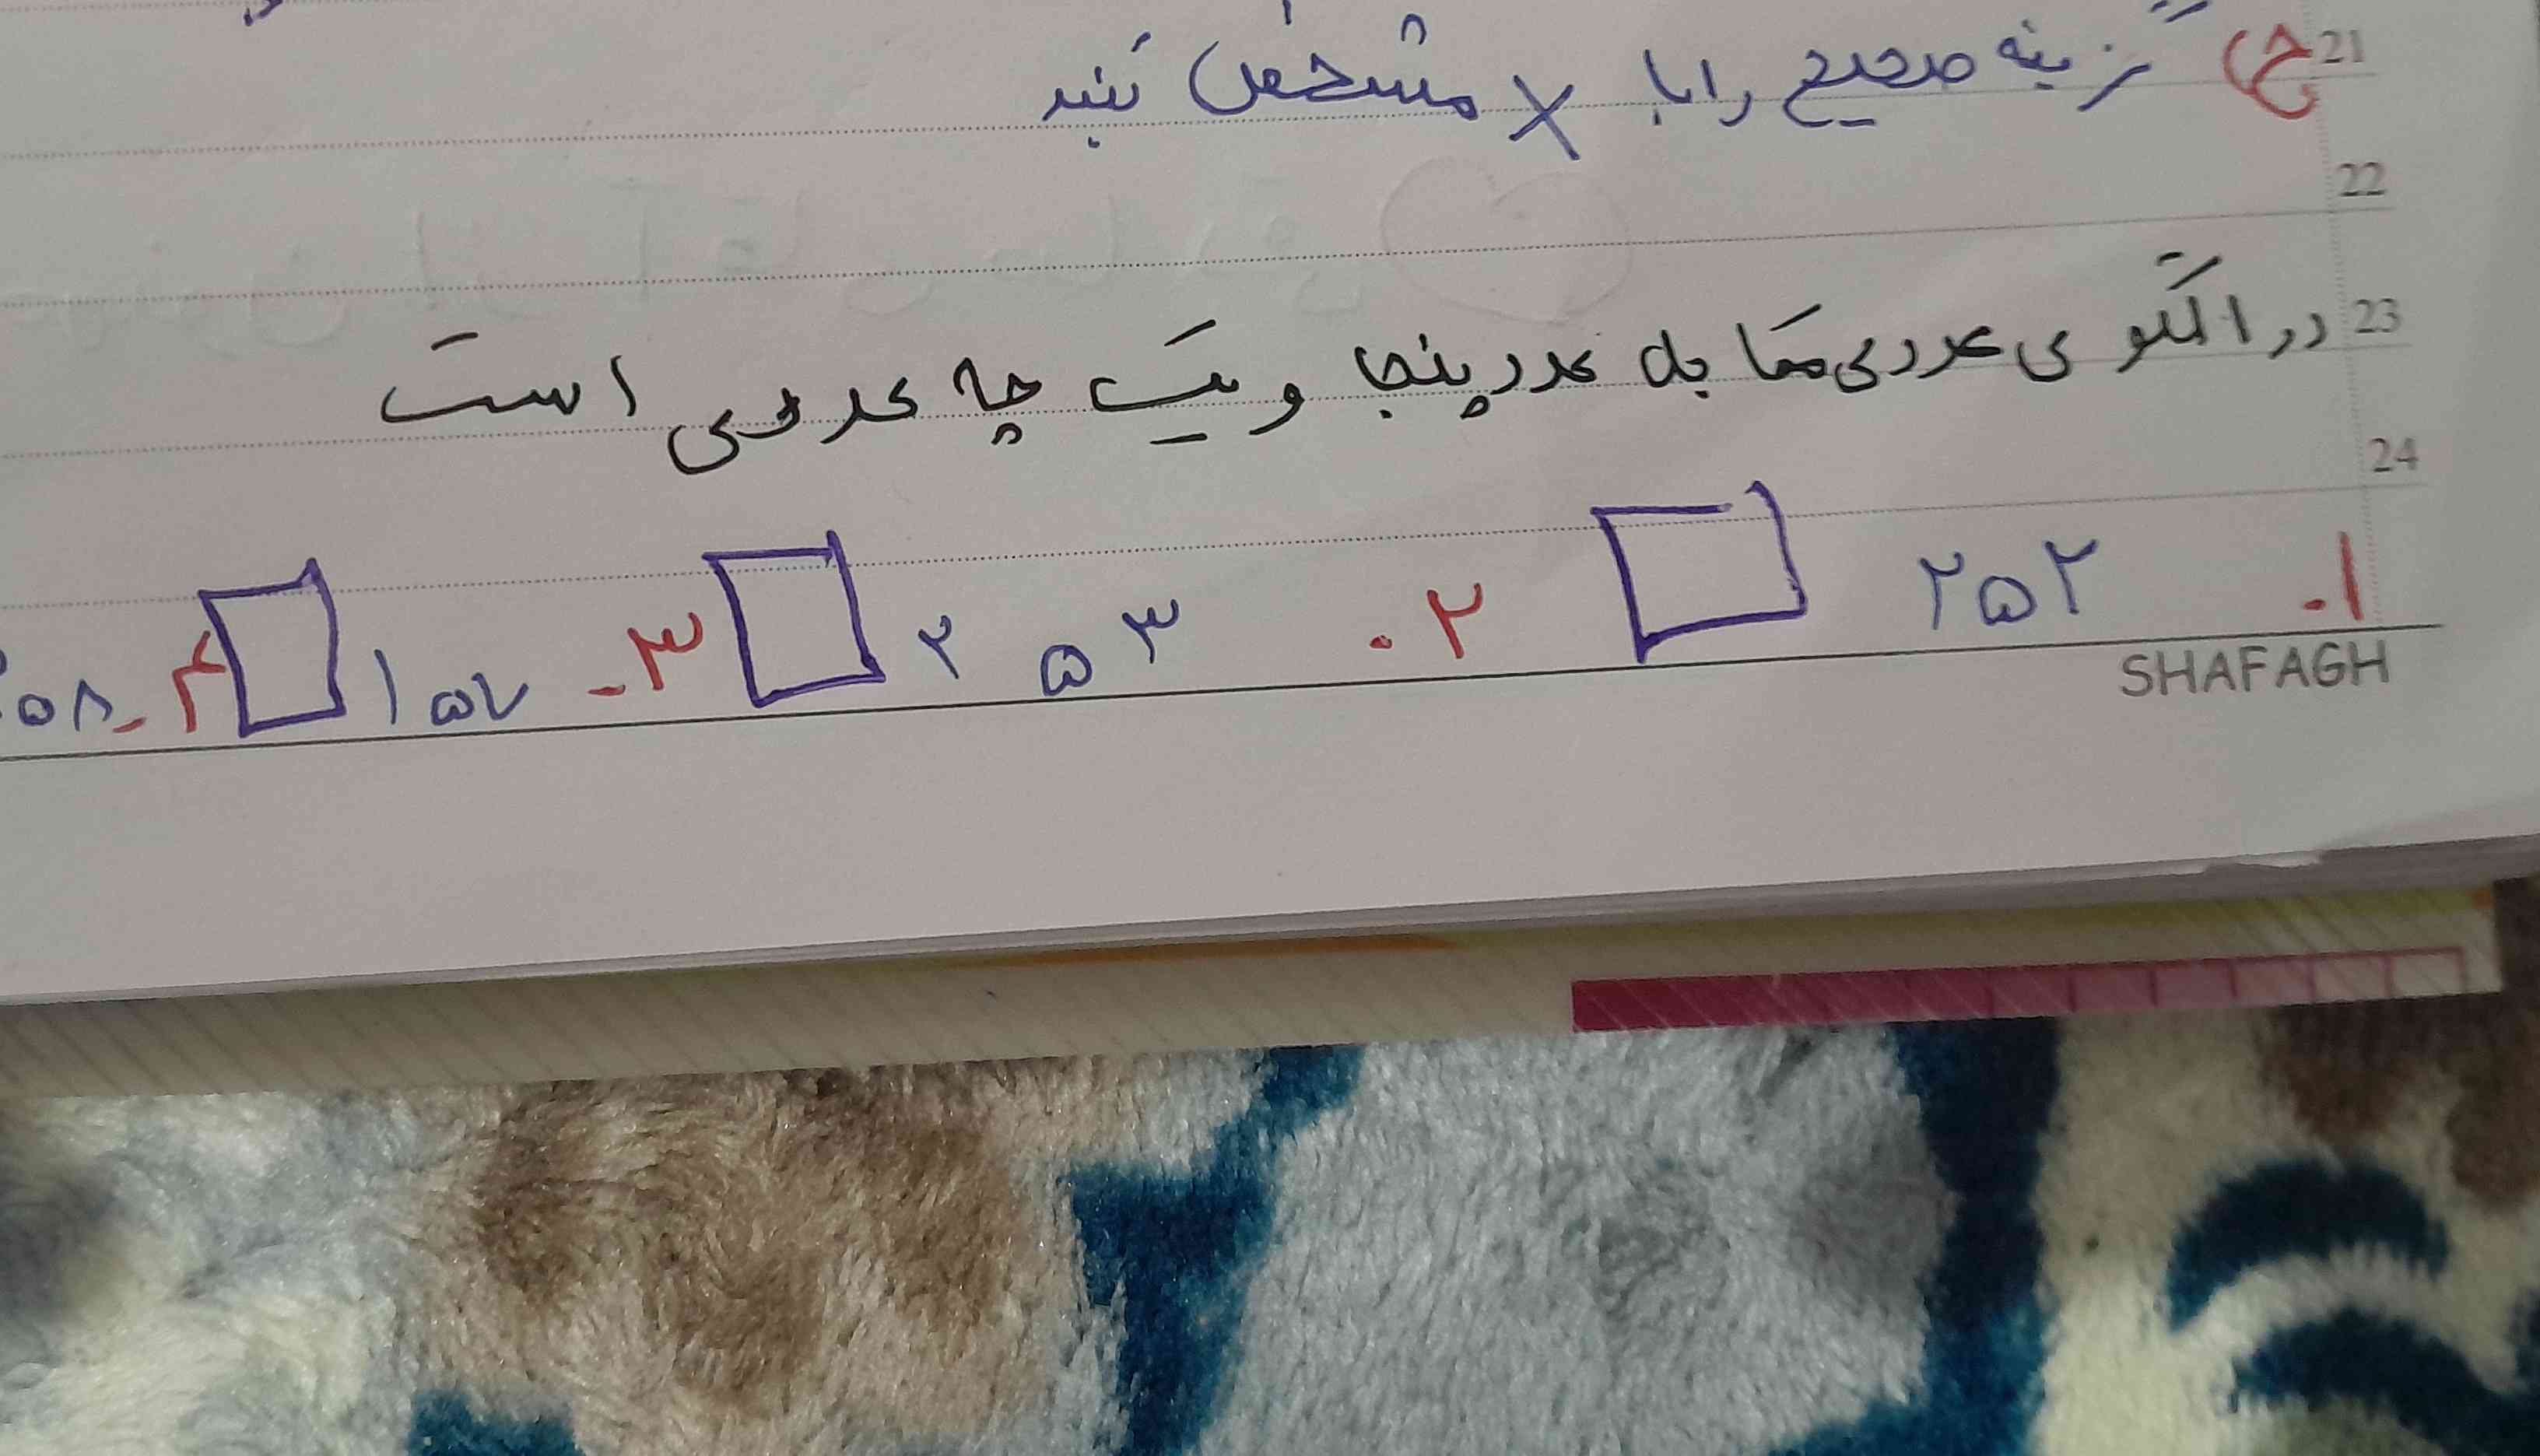 21 ح) گزینه صحیح را با X مشخص کنید
22
23 در الگوی عددی مقابله عدد پنجا و یک چه عددی است
24
۱- ۲۵۲ ۲. ۲۵۳ ۳- ۱۵۷ ۴- ۵۸
SHAFAGH